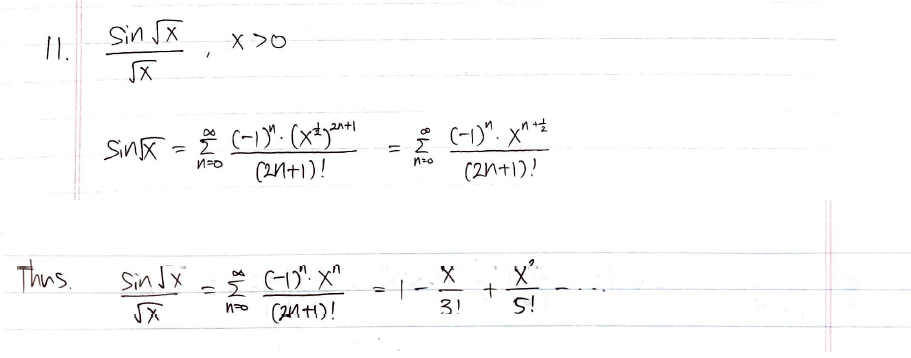 11. sin√x / √x , x > 0
sin√x = ∑_{n=0}^{∞} (-1)^n · (x^{1/2})^{2n+1} / (2n+1)! = ∑_{n=0}^{∞} (-1)^n · x^{n+1/2} / (2n+1)!
Thus. sin√x / √x = ∑_{n=0}^{∞} (-1)^n · x^n / (2n+1)! = 1 - x/3! + x²/5! - ....